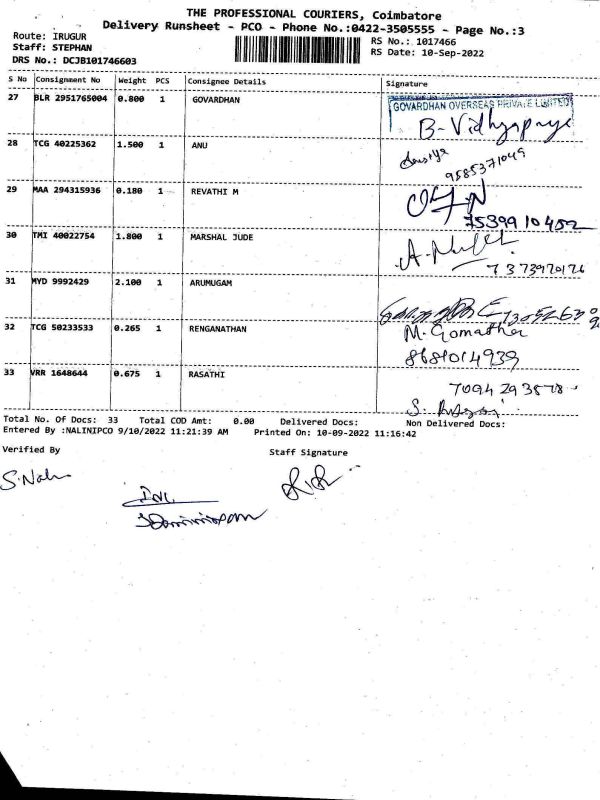 THE PROFESSIONAL COURIERS, Coimbatore
Delivery Runsheet - PCO - Phone No.:0422-3505555 - Page No.:3
Route: IRUGUR
Staff: STEPHAN
DRS No.: DCJB101746603
RS No.: 1017466
RS Date: 10-Sep-2022
S No Consignment No Weight PCS Consignee Details Signature
27 BLR 2951765004 0.800 1 GOVARDHAN
GOVARDHAN OVERSEAS PRIVATE LIMITED
B-Vidhyapriya
28 TCG 40225362 1.500 1 ANU
9585371049
29 MAA 294315936 0.180 1 REVATHI M
7539910452
30 TMI 40022754 1.800 1 MARSHAL JUDE
7373970126
31 MYD 9992429 2.100 1 ARUMUGAM
32 TCG 50233533 0.265 1 RENGANATHAN
M. Gomathi
8681014939
33 VRR 1648644 0.675 1 RASATHI
7094293578
Total No. Of Docs: 33 Total COD Amt: 0.00 Delivered Docs: Non Delivered Docs:
Entered By :NALINIPCO 9/10/2022 11:21:39 AM Printed On: 10-09-2022 11:16:42
Verified By Staff Signature